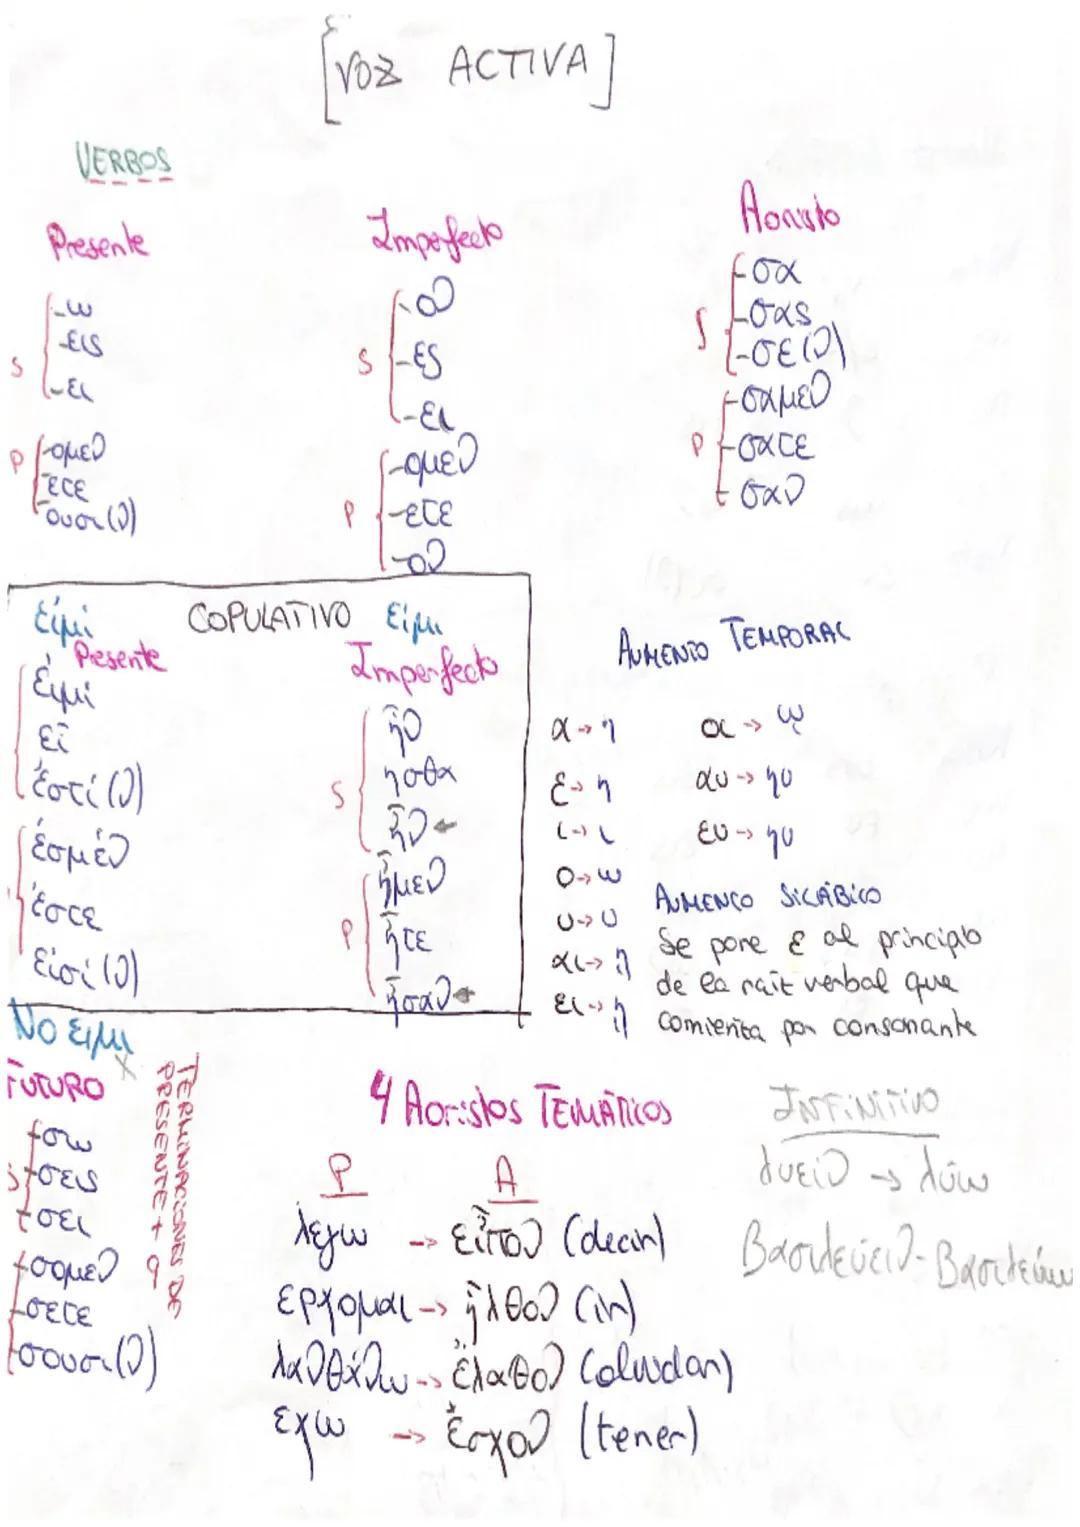 [VOZ ACTIVA]
VERBOS
Presente
S
-ω
-εις
-ει
P
-ομεν
ετε
-ουσι(ν)
Imperfecto
S
-ον
-ες
-ει
P
-ομεν
-ετε
-ον
Aoristo
S
-σα
-σας
-σε(ν)
P
-σαμεν
-σατε
σαν
COPULATIVO
εἰμί
Presente
εἰμί
εῖ
ἐστί(ν)
ἐσμέν
ἐστε
εἰσί(ν)
Eἰμι
Imperfecto
S
ἦν
ησθα
ἦν ←
P
ἦμεν
ἦτε
ἦσαν ←
AUMENTO TEMPORAL
α → η
ε → η
ι → ι
ο → ω
υ → υ
αι → ῃ
ει → ῃ
οι → ῳ
αυ → ηυ
ευ → ηυ
AUMENTO SILÁBICO
Se pone ε al principio
de la raíz verbal que
comienza por consonante
NO ειμι
FUTURO
S
-σω
-σεις
-σει
-σομεν
-σετε
-σουσι(ν)
TERMINACIONES DE
PRESENTE + σ
4 Aoristos TEMÁTICOS
P A
λεγω → εἶπον (decir)
ερχομαι → ἦλθον (ir)
λανθάνω → ἔλαθον (olvidar)
εχω → ἔσχον (tener)
INFINITIVO
λυειν → λύω
Βασιλεύειν - Βασιλεύω